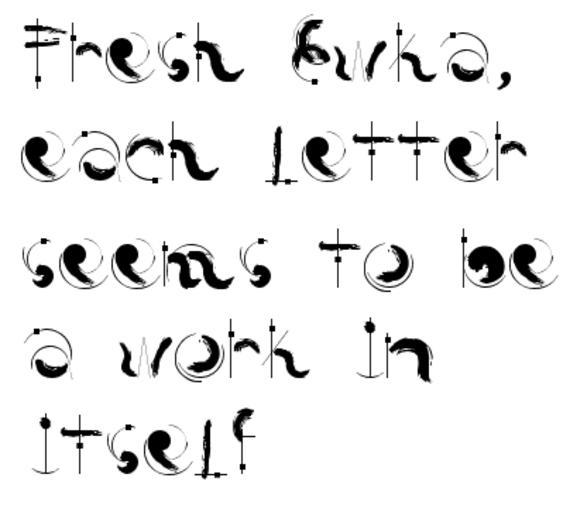 Fresh Ewka,
each letter
seems to be
a work in
itself